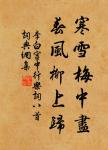 寒雪梅中盡
春風柳上歸
李白宮中行樂詞八首
詞典網集